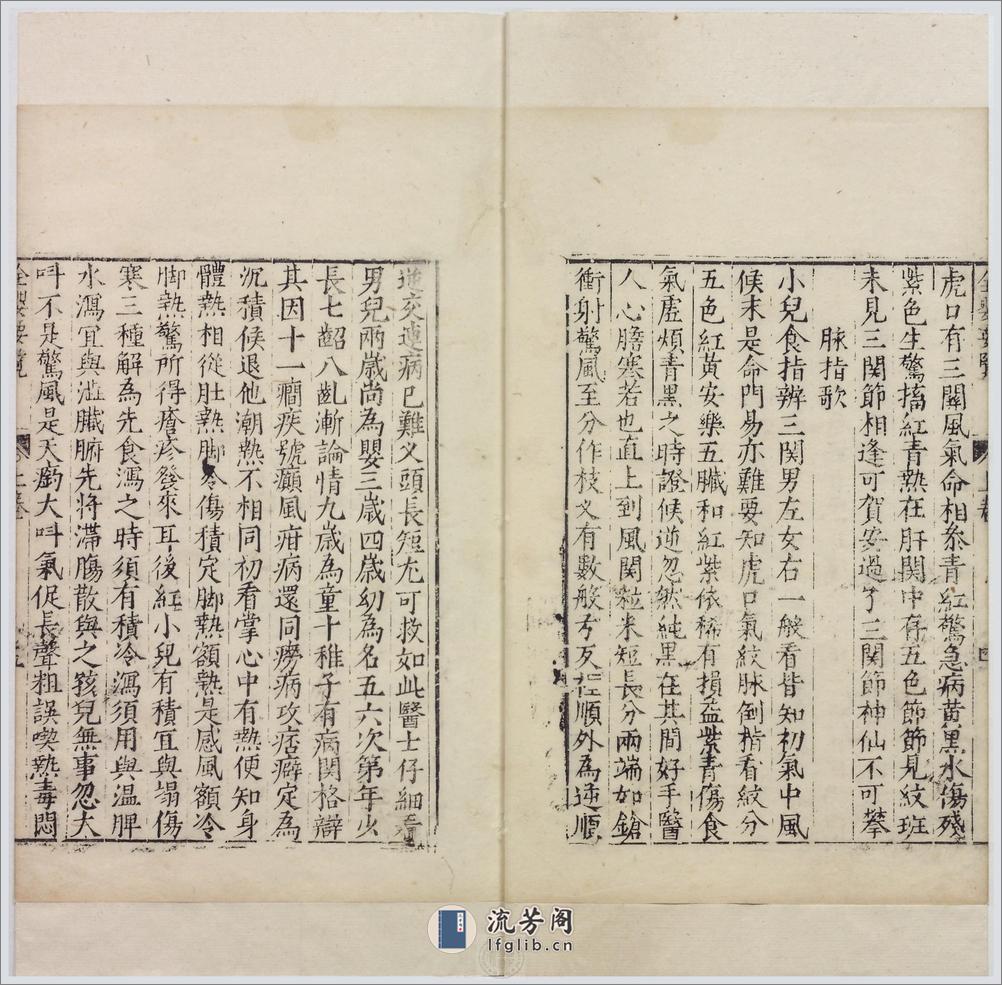 虎口有三關風氣命相叅青紅驚急病黄黑水傷殘
紫色生驚搐紅青熱在肝関中存五色節節見紋班
未見三関節相逢可賀安過了三関節神仙不可攀
脉指歌
小兒食指辨三関男左女右一般看皆知初氣中風
候末是命門易亦難要知虎口氣紋脉倒指看紋分
五色紅黄安樂五臓和紅紫依稀有損益紫青傷食
氣虛煩青黑之時證候逆忽然純黒在其間好手醫
人心膽寒若也直上到風関粒米短長分兩端如鎗
衝射驚風至分作枝义有數般方反裡順外為逆順
逆交連病已難义頭長短尤可救如此醫士仔細看
男兒兩歳尚為嬰三歳四歳幼為名五六次第年少
長七齠八齓漸論情九歳為童十稚子有病関格辯
其因十一癎疾號癲風疳病還同癆病攻痞癖定為
沉積候退他潮熱不相同初看掌心中有热便知身
體熱相從肚熱脚冷傷積定脚熱額熱是感風額冷
脚熱驚所得瘡疹發來耳後紅小兒有積冝與塌傷
寒三種解為先食瀉之時須有積冷瀉須用與温脾
水瀉宜與澁臓腑先將滯腸散與之孩兒無事忽大
呌不是驚風是天癇大呌氣促長聲粗誤喫熱毒悶
全嬰要覽
上卷
五
流芳阁
lfglib.cn